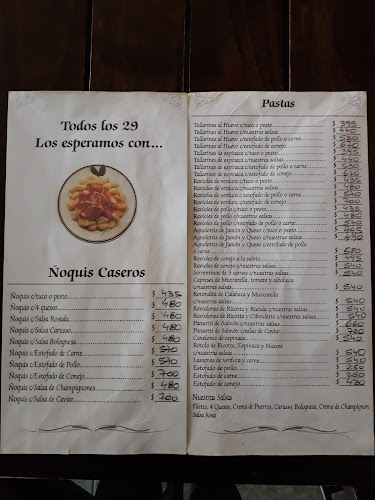 Todos los 29
Los esperamos con...
Ñoquis Caseros
Ñoquis c/tuco o pesto $ 435
Ñoquis c/4 quesos $ 480
Ñoquis c/Salsa Rosada $ 480
Ñoquis c/Salsa Caruso $ 480
Ñoquis c/Salsa Bolognesa $ 480
Ñoquis c/Estofado de Carne $ 540
Ñoquis c/Estofado de Pollo $ 540
Ñoquis c/Estofado de Conejo $ 700
Ñoquis c/Salsa de Champignones $ 480
Ñoquis c/Salsa de Caviar $ 700
Pastas
Tallarines al Huevo c/tuco o pesto $ 395
Tallarines al Huevo c/nuestras salsas $ 440
Tallarines al Huevo c/estofado de pollo o carne $
Tallarines al Huevo c/estofado de conejo $
Tallarines de espinaca c/tuco o pesto $
Tallarines de espinaca c/nuestras salsas $
Tallarines de espinaca c/estofado de pollo o carne $
Tallarines de espinaca c/estofado de conejo $
Ravioles de verdura c/tuco o pesto $
Ravioles de verdura c/nuestras salsas $ 480
Ravioles de verdura c/estofado de pollo o carne $ 540
Ravioles de verdura c/estofado de conejo $
Ravioles de pollo c/tuco o pesto $ 435
Ravioles de pollo c/nuestras salsas $ 480
Ravioles de pollo c/estofado de pollo o carne $ 540
Agnolottis de Jamón y Queso c/tuco o pesto $ 445
Agnolottis de Jamón y Queso c/nuestras salsas $ 490
Agnolottis de Jamón y Queso c/estofado de pollo
o carne $ 550
Ravioles de conejo a la salvia $ 495
Ravioles de conejo c/nuestras salsas $ 540
Sorrentinos de 4 carnes c/nuestras salsas $ 540
Capresses de Muzzarella, tomate y albahaca
c/nuestras salsas $ 540
Rotondini de Calabaza y Muzzarella
c/nuestras salsas $ 540
Raviolones de Ricotta y Rúcula c/nuestras salsas $ 540
Raviolones de Ricotta y Ciboulette c/nuestras salsas $ 540
Pansotti de Salmón c/nuestras salsas $ 660
Pansotti de Salmón c/salsa de Caviar $ 720
Canelones de espinaca $ 540
Rotolo de Ricotta, Espinaca y Nueces
c/nuestras salsas $ 540
Lasagna de verdura y carne $ 540
Estofado de pollo $ 250
Estofado de carne $ 250
Estofado de conejo $ 430
Nuestras Salsas
Filetto, 4 Quesos, Crema de Puerros, Carusso, Bolognesa, Crema de Champignon
Salsa Rosa